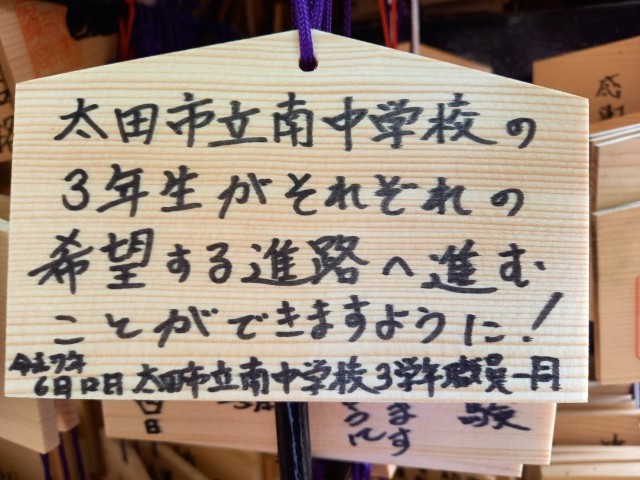 太田市立南中学校の
3年生がそれぞれの
希望する進路へ進む
ことができますように!
令和7年
6月12日 太田市立南中学校3学年職員一同
ます
験